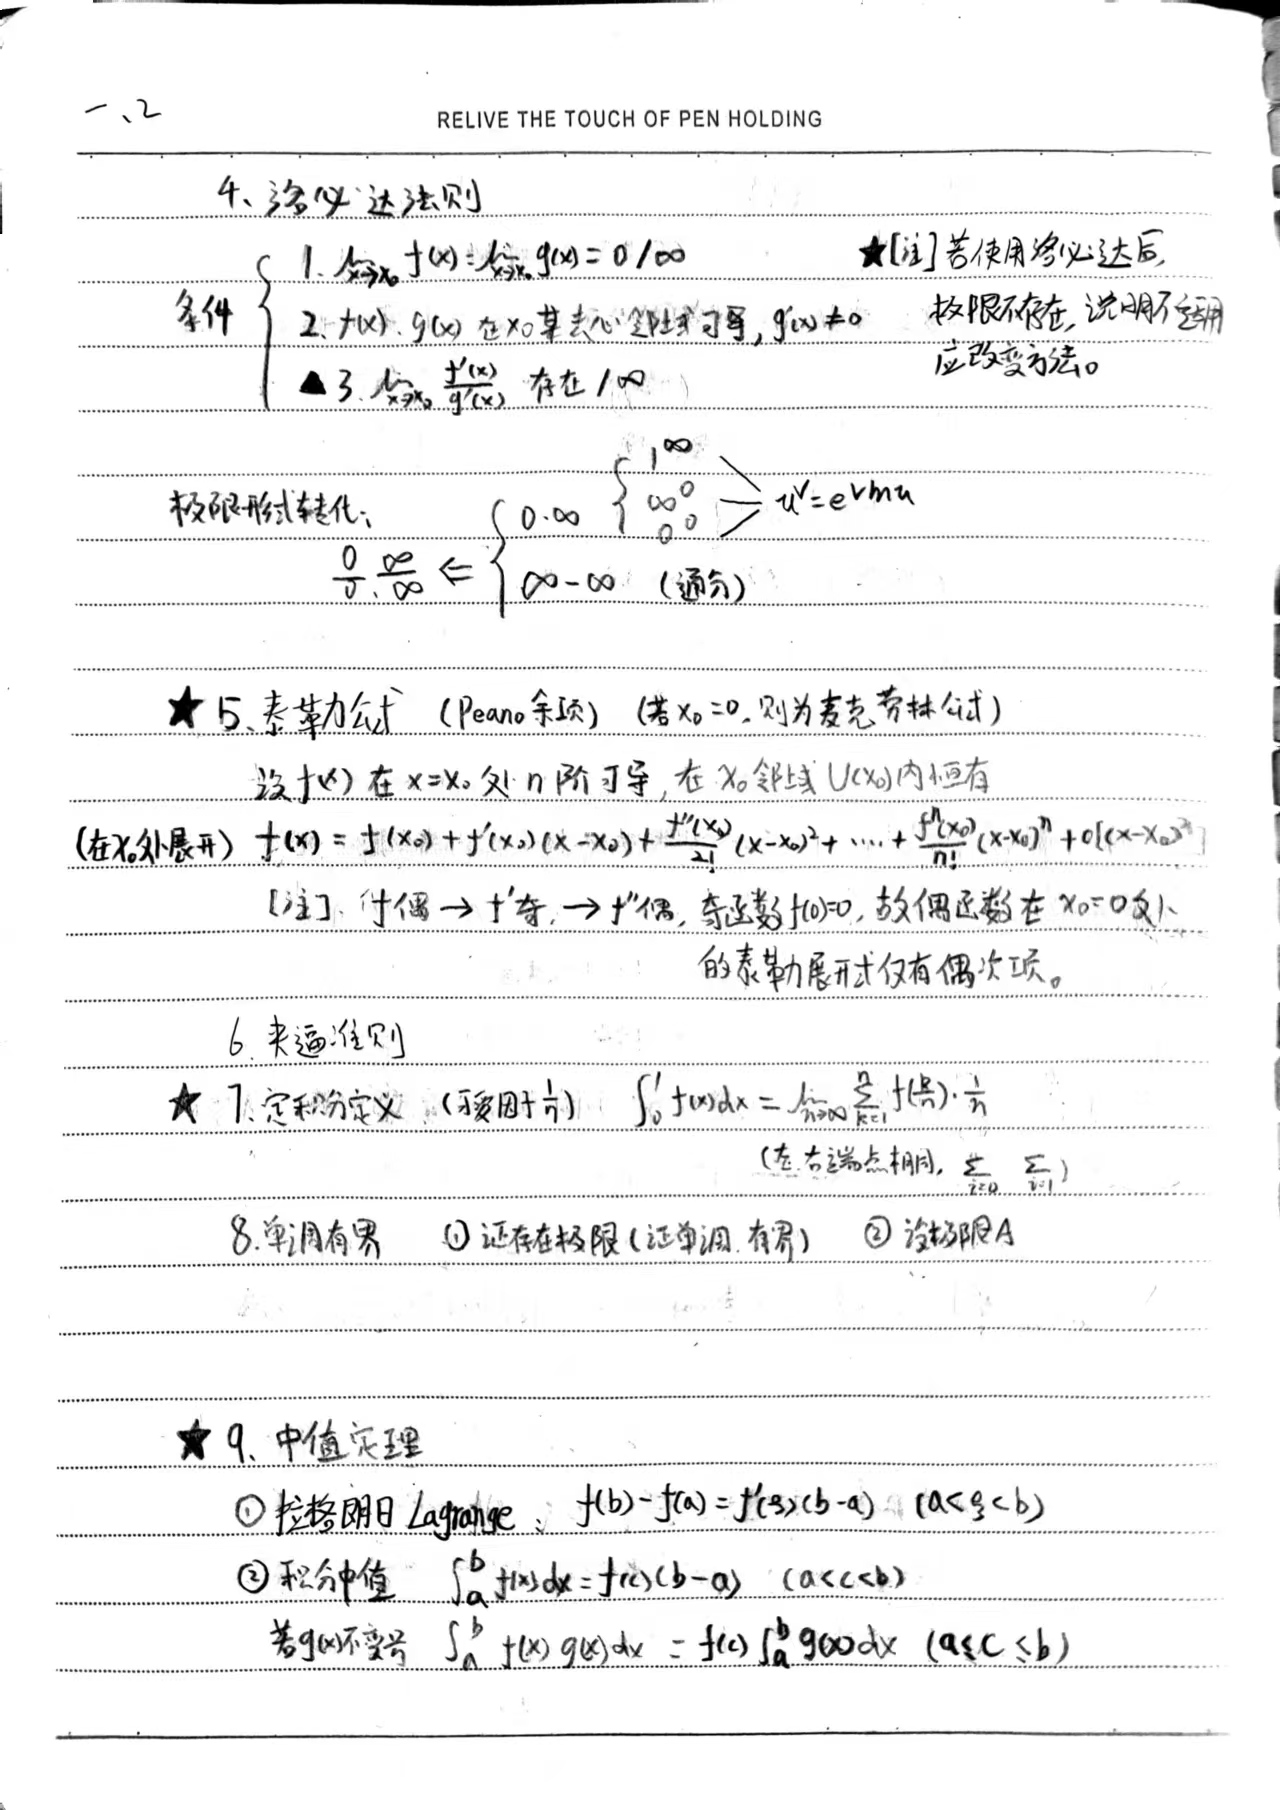 一、2
RELIVE THE TOUCH OF PEN HOLDING
4、洛必达法则
条件
1. lim x→x₀ f(x) = lim x→x₀ g(x) = 0/∞
2. f(x). g(x) 在 x₀ 某去心邻域可导, g'(x) ≠ 0
▲3. lim x→x₀ f'(x)/g'(x) 存在/∞
★[注] 若使用洛必达后,
极限不存在, 说明不适用
应改变方法。
极限形式转化:
0/0. ∞/∞ ⇐ { 0·∞ { 1^∞ ∞^0 0^0 u^v = e^{v ln u}
∞-∞ (通分)
★ 5、泰勒公式 (Peano 余项) (若 x₀=0, 则为麦克劳林公式)
设 f(x) 在 x=x₀ 处 n 阶可导, 在 x₀ 邻域 U(x₀) 内恒有
(在x₀处展开) f(x) = f(x₀) + f'(x₀)(x-x₀) + f''(x₀)/2! (x-x₀)² + ···· + fⁿ(x₀)/n! (x-x₀)ⁿ + o[(x-x₀)ⁿ]
[注]. f偶 → f'奇, → f''偶, 奇函数 f(0)=0, 故偶函数在 x₀=0 处
的泰勒展开式仅有偶次项。
6. 夹逼准则
★ 7. 定积分定义 (可爱因子 1/n) ∫₀¹ f(x)dx = lim n→∞ Σ k=1 n f(k/n)·1/n
(左.右端点相同, Σ i=0 Σ i=1)
8. 单调有界 ① 证存在极限 (证单调.有界) ② 设极限A
★ 9、中值定理
① 拉格朗日 Lagrange: f(b)-f(a) = f'(ξ)(b-a) (a<ξ<b)
② 积分中值 ∫ₐᵇ f(x)dx = f(c)(b-a) (a<c<b)
若g(x)不变号 ∫ₐᵇ f(x)g(x)dx = f(c)∫ₐᵇ g(x)dx (a≤c≤b)